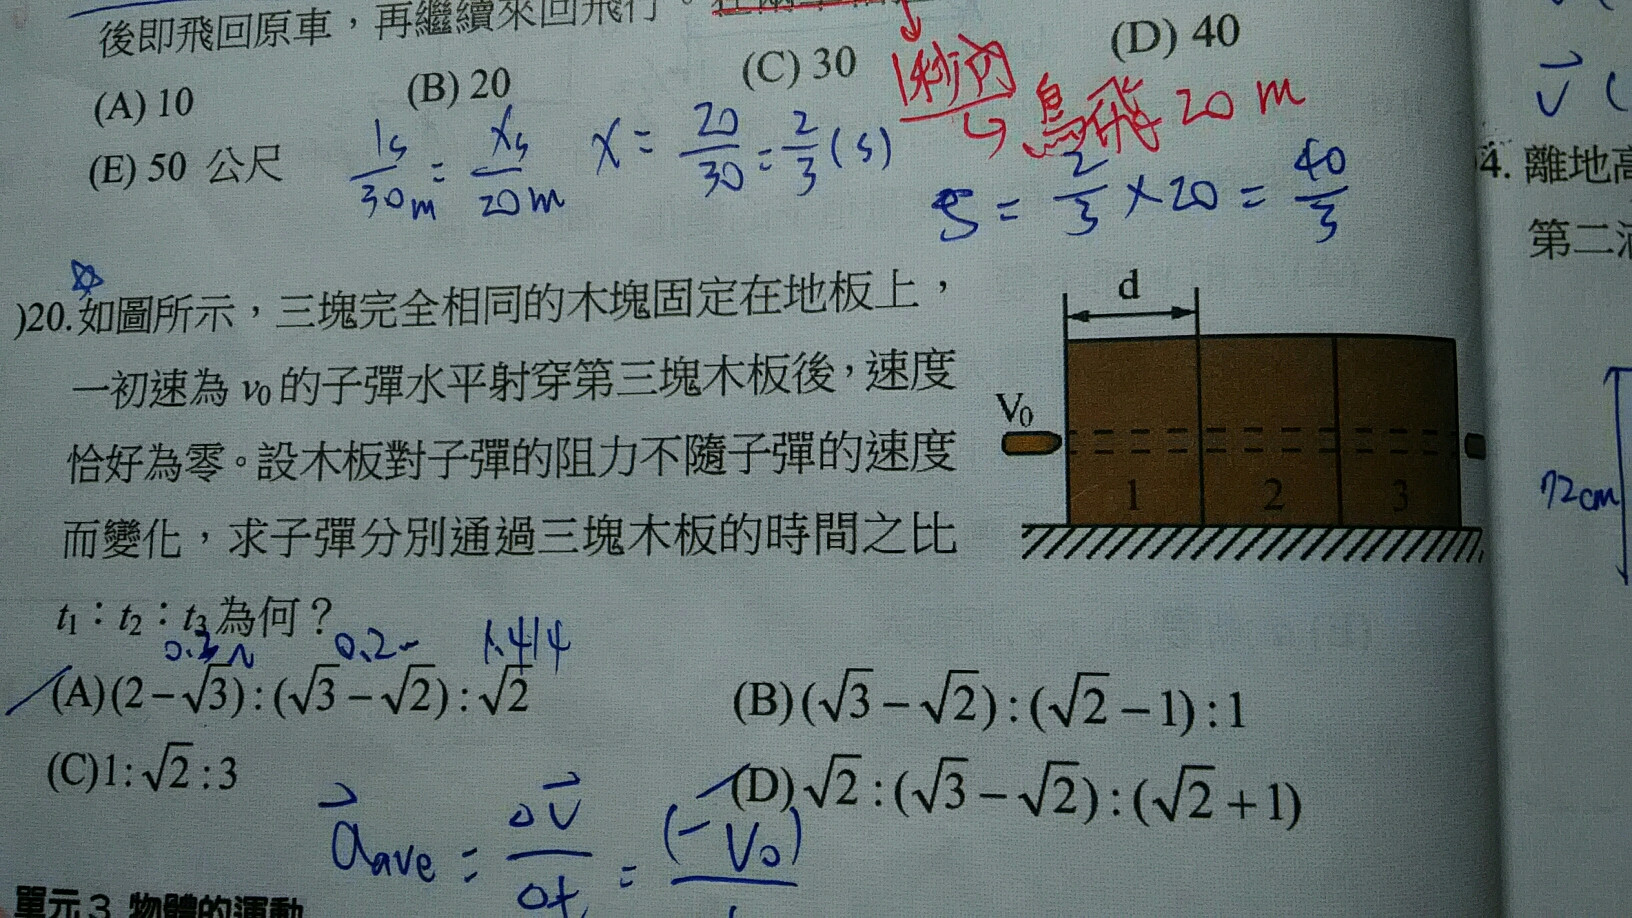 後即飛回原車，再繼續來回飛行。
(A) 10 (B) 20 (C) 30 (D) 40
1秒內
鳥飛 20 m
(E) 50 公尺
1s/30m = Xs/20m X = 20/30 = 2/3 (s)
S = 2/3 × 20 = 40/3
)20. 如圖所示，三塊完全相同的木塊固定在地板上，
一初速為 v₀ 的子彈水平射穿第三塊木板後，速度
恰好為零。設木板對子彈的阻力不隨子彈的速度
而變化，求子彈分別通過三塊木板的時間之比
t₁：t₂：t₃ 為何？
d
V₀
1 2 3
0.2~ 1.414
(A)(2－√3)：(√3－√2)：√2 (B)(√3－√2)：(√2－1)：1
(C)1：√2：3 (D)√2：(√3－√2)：(√2＋1)
a⃗ave = ΔV⃗/Δt = (-V₀)/
單元 3 物體的運動
V⃗ (
4. 離地高
第二
72cm